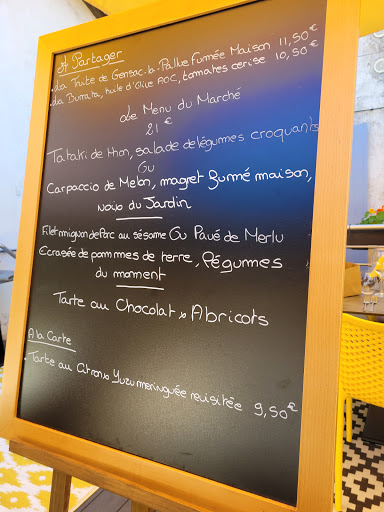 A Partager
. La Truite de Gensac-la-Pallue Fumée Maison 11,50€
. La Burrata, huile d'Olive AOC, tomates cerise 10,50€
Le Menu du Marché
21 €
Tataki de thon, salade de légumes croquants
Ou
Carpaccio de Melon, magret Fumé maison,
Noix du Jardin
Filet mignon de Porc au sésame Ou Pavé de Merlu
Ecrasée de pommes de terre, légumes
du moment
Tarte au Chocolat x Abricots
A la Carte
. Tarte au Citron x Yuzu meringuée revisitée 9,50€